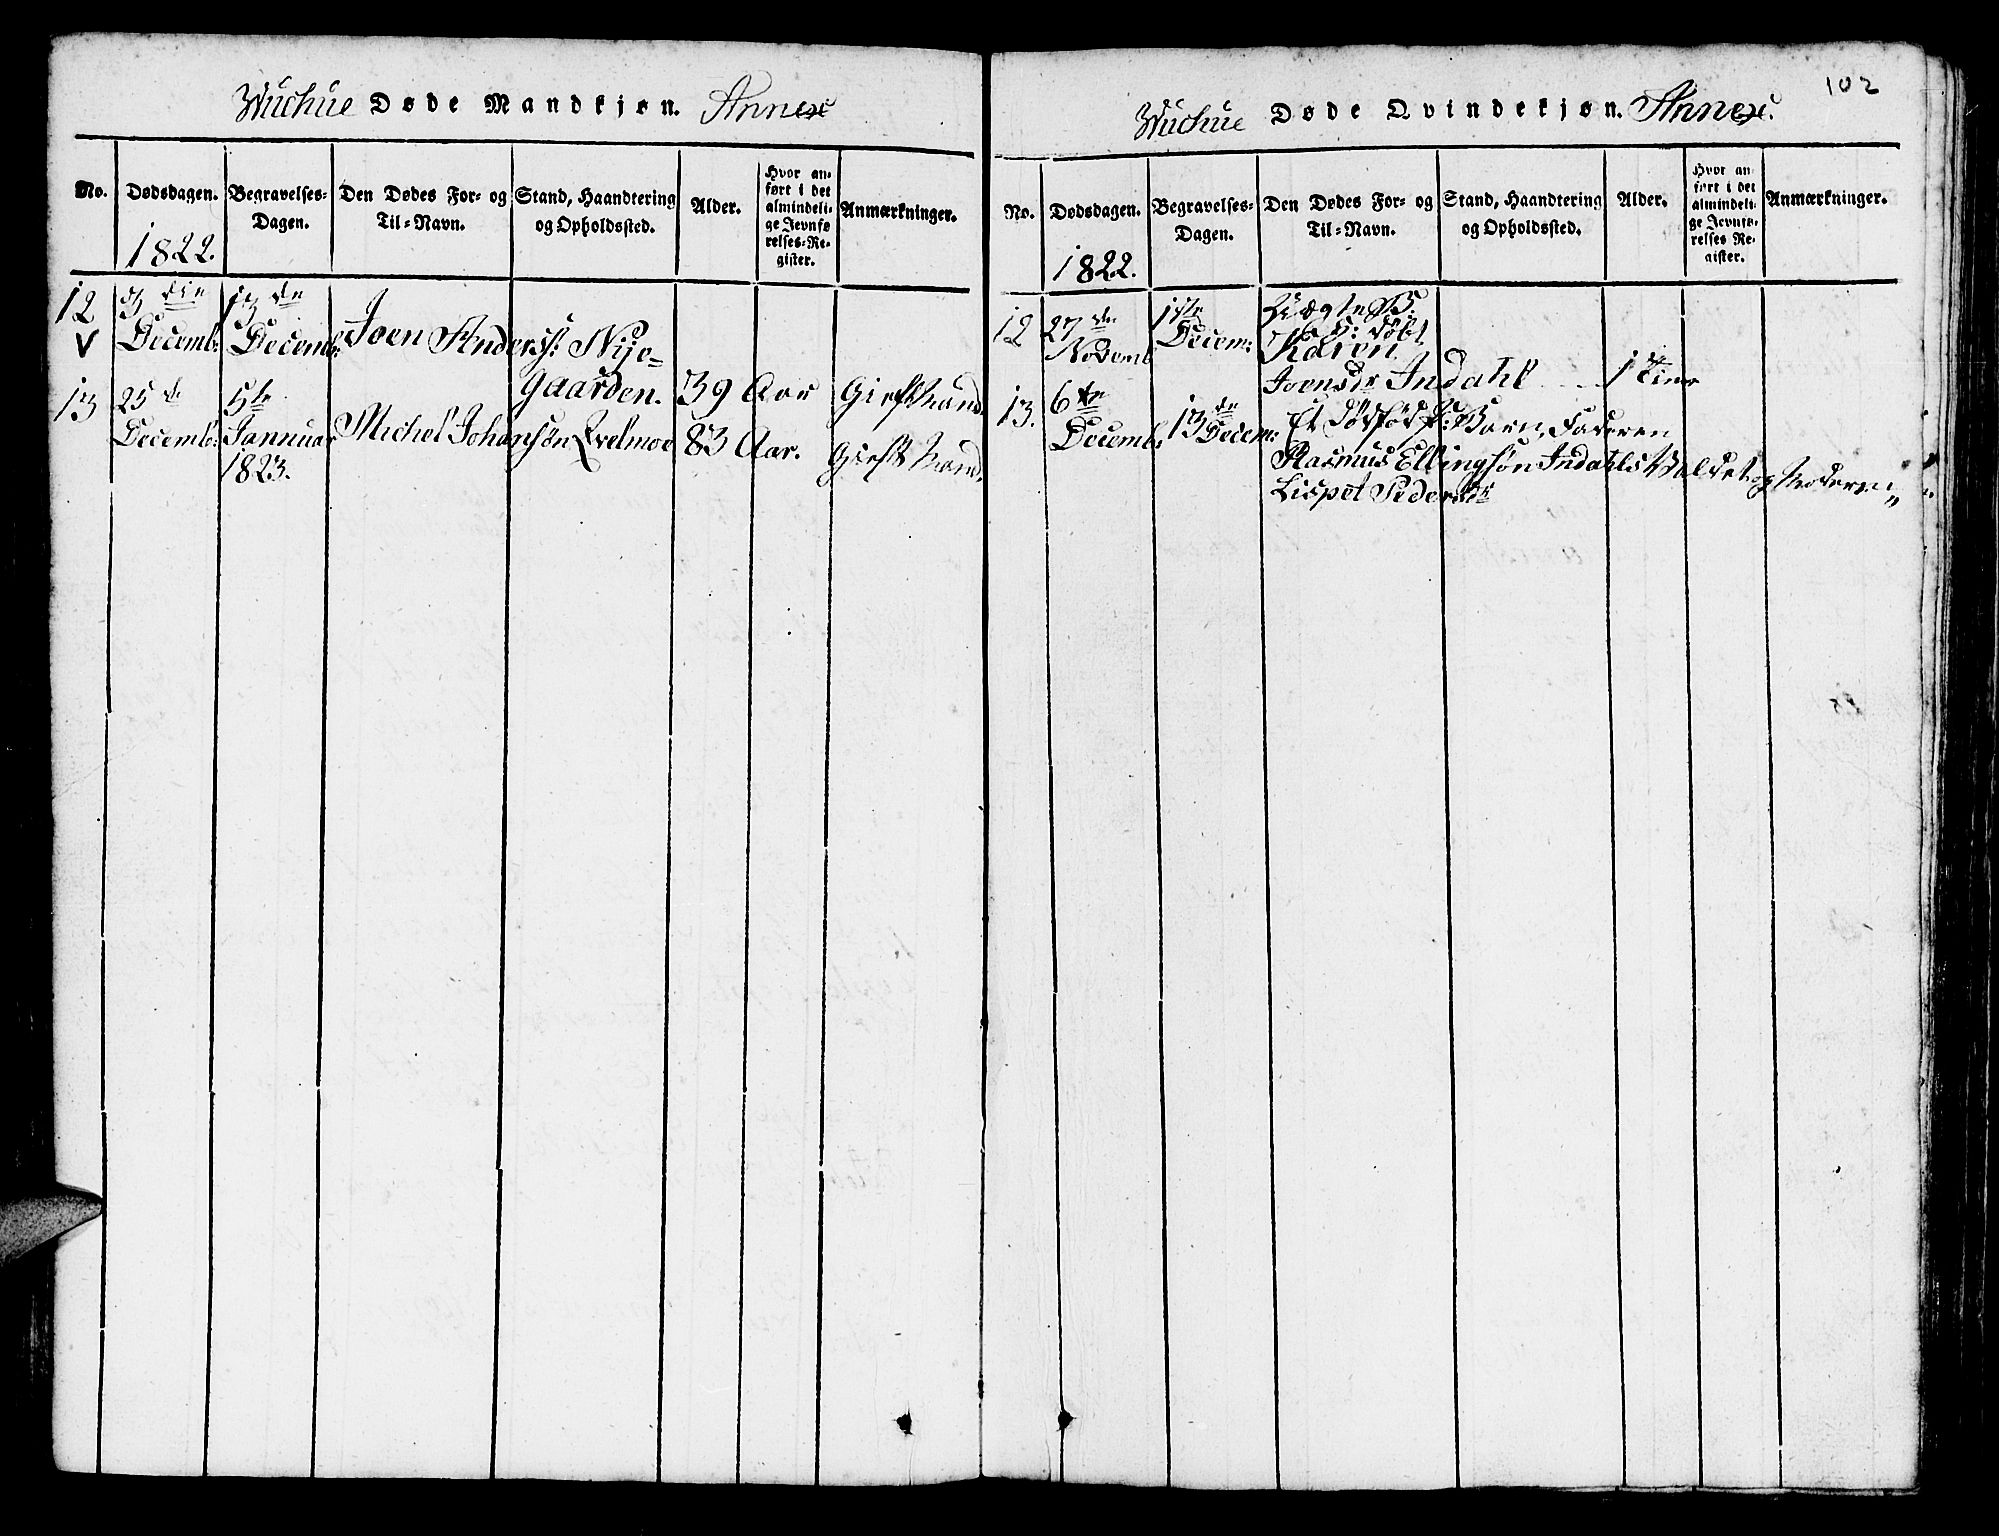 Wuchue Døde Mandkjøn. Annex
No.
Dødsdagen.
1822.
Begravelses-
Dagen.
Den Dødes For- og
Til-Navn.
Stand, Haandtering
og Opholdssted.
Alder.
Hvor an-
ført i det
almindeli-
ge Jevnfø
relses-Re-
gister.
Anmærkninger.
12
V
Decemb:
13 de
Decemb:
Joen Anderss: Nije-
gaarden.
39 Aar
Gieft Mand
13
25 de
Decemb:
5te
Januar
1823.
Michel Johansøn Qvelmoe
83 Aar.
Gieft Mand.
102
Wuchue Døde Qvindekjøn. Annex.
No.
Dødsdagen.
1822.
Begravelses-
Dagen.
Den Dødes For- og
Til-Navn.
Stand, Haandtering
og Opholdssted.
Alder.
Hvor an
ført i det
almindeli-
ge Jevnfø-
relses Re-
gister.
Anmærkninger.
12
27 de
Novemb
1ste
Decem:
Ægte B:
H: døbt
Karen
Joensdr Indahl
1 Time
13.
6 te
Decemb:
13 de Decem:
Et dødfød P: Barn, Faderen
Rasmus Ellingsøn Indahls Waldet og Moderen
Lispet Pedersdr